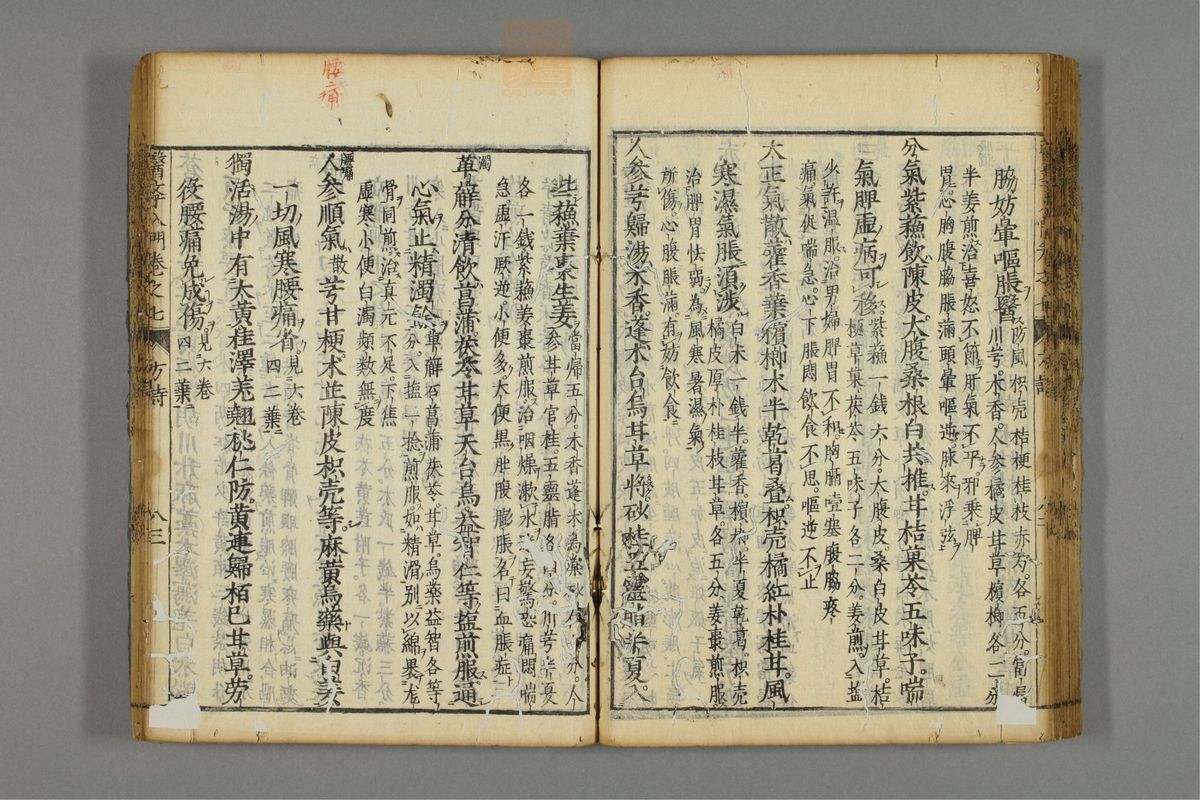 脇妨暈嘔脹醫
防風枳壳桔梗桂枝赤芍各五分
半姜煎治喜怒不節肝氣不平邪乘脾
川芎木香人參橘皮甘草檳榔各二分
胃心胸腹脇脹滿頭暈嘔逆脉來浮弦
分氣紫蘇飲陳皮大腹桑根白共推甘桔菓苓五味子喘
氣脾虛病可移
紫蘇一錢六分大腹皮桑白皮甘草桔
梗草菓茯苓五味子各二分姜煎入塩
少許温服治男婦脾胃不和胸膈噎塞腹脇疼
痛氣促喘急心下脹悶飲食不思嘔逆不止
大正氣散藿香葉檳榔朮半乾葛叠枳壳橘紅朴桂甘風
寒濕氣脹湏涉
白朮一錢半藿香檳榔半夏乾葛枳壳
橘皮厚朴桂枝甘草各五分姜棗煎服
治脾胃怯弱為風寒暑濕氣
所傷心腹脹滿有妨飲食
人參芎歸湯木香蓬朮台烏甘草將砂桂五靈脂半夏入
此蘇葉棗生姜
當歸五分木香蓬朮烏藥砂仁分人
參甘草官桂五靈脂各分川芎半夏
各一錢紫蘇姜棗煎服治咽燥漱水妄驚恐痛悶喘
急虛汗厥逆小便多大便黑肚腹膨脹名曰血脹症
濁
萆解分清飲菖蒲茯苓甘草天台烏益智仁等塩煎服通
心氣止精濁餘
萆解石菖蒲茯苓甘草烏藥益智各等
分入塩一捻煎服如精滑別以綿裹龙
骨同煎治真元不足下焦
虛寒小便白濁頻数無度
腰痛
人參順氣散芎甘梗朮芷陳皮枳壳等麻黄烏藥與白姜
一切風寒腰痛省
見六卷
四二葉
獨活湯中有大黄桂澤羌翹桃仁防黄連歸栢巳甘草劳
役腰痛免成傷
見六卷
四二葉
醫學入門卷之七
方詩
八三
腰痛